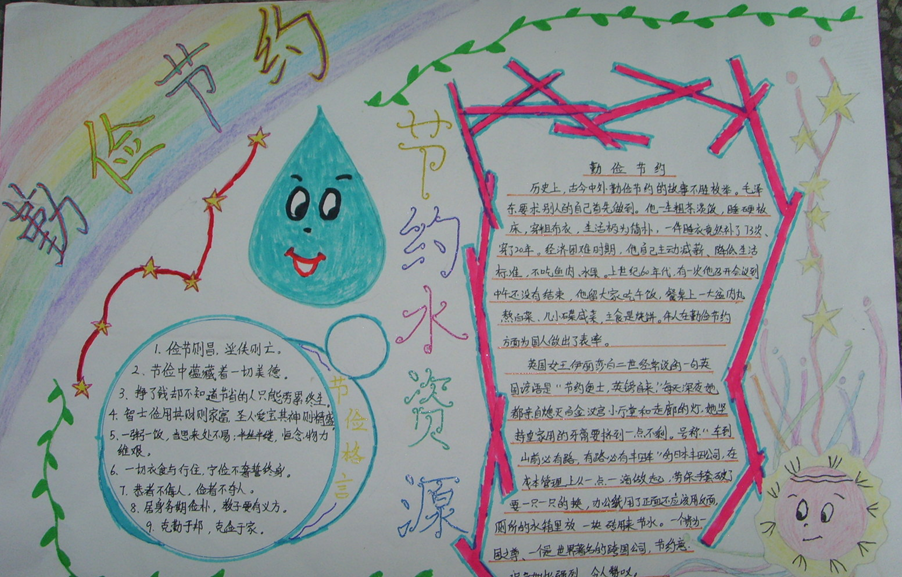 勤俭节约
节约水资源
1. 俭节则昌,淫佚则亡。
2. 节俭中蕴藏着一切美德。
3. 挣了钱却不知道节省的人只能劳累终生。
4. 智士俭用其财则家富 圣人爱宝其神则精盛
5. 一粥一饭,当思来处不易;半丝半缕,恒念物力
维艰。
6. 一切衣食与行住,宁俭不奢誓终身。
7. 恭者不侮人,俭者不夺人。
8. 居身务期俭朴,教子要有义方。
9. 克勤于邦,克俭于家。
节俭格言
勤俭节约
历史上,古今中外勤俭节约的故事不胜枚举。毛泽
东要求别人的自己首先做到。他一生粗茶淡饭,睡硬板
床,穿粗布衣,生活极为简朴,一件睡衣竟然补了73次、
穿了20年。经济困难时期,他自己主动减薪、降低生活
标准,不吃鱼肉、水果。上世纪60年代,有一次他召开会议到
中午还没有结束,他留大家吃午饭,餐桌上一大盆肉丸
熬白菜、几小碟咸菜,主食是烧饼。令人在勤俭节约
方面为国人做出了表率。
英国女王伊丽莎白二世经常说的一句英
国谚语是"节约便士,英镑自来",每天深夜她
都亲自熄灭白金汉宫小厅堂和走廊的灯,她坚
持皇家用的牙膏要挤到一点不剩。号称"车到
山前必有路,有路必有丰田车"的日本丰田公司,在
成本管理上从一点一滴做起,劳保手套破了
要一只一只的换,办公纸用了正面还应该用反面,
厕所的水箱里放一块砖用来节水。一个贵为一
国之尊、一个是世界著名的跨国公司,节约意